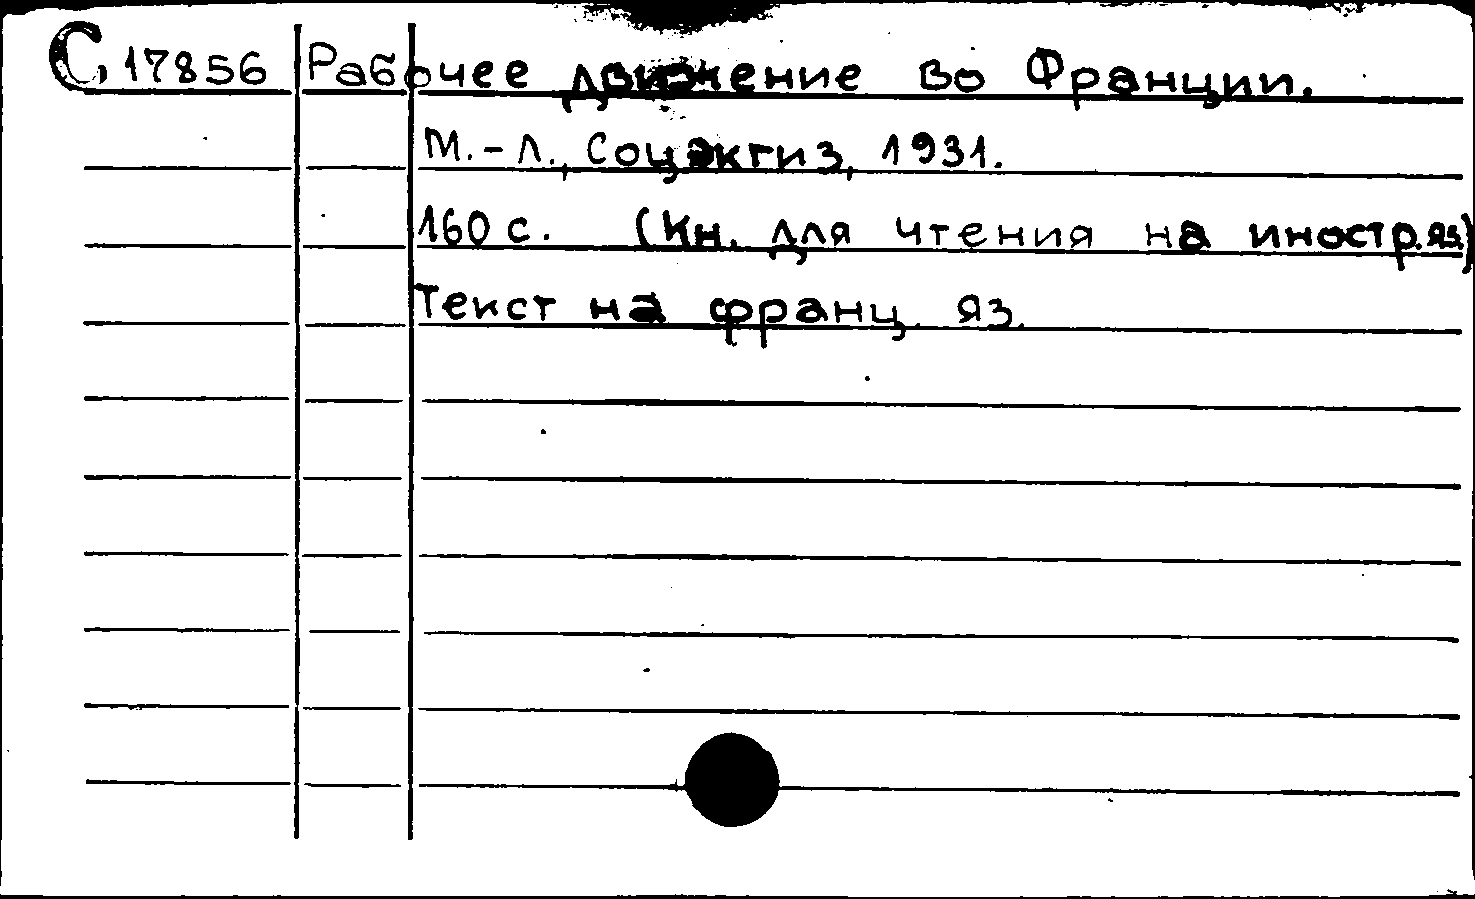 С 17856 Рабочее движение во Франции.
М.-Л., Соцэкгиз, 1931.
160 с. (Кн. для чтения на иностр. яз)
Текст на франц. яз.